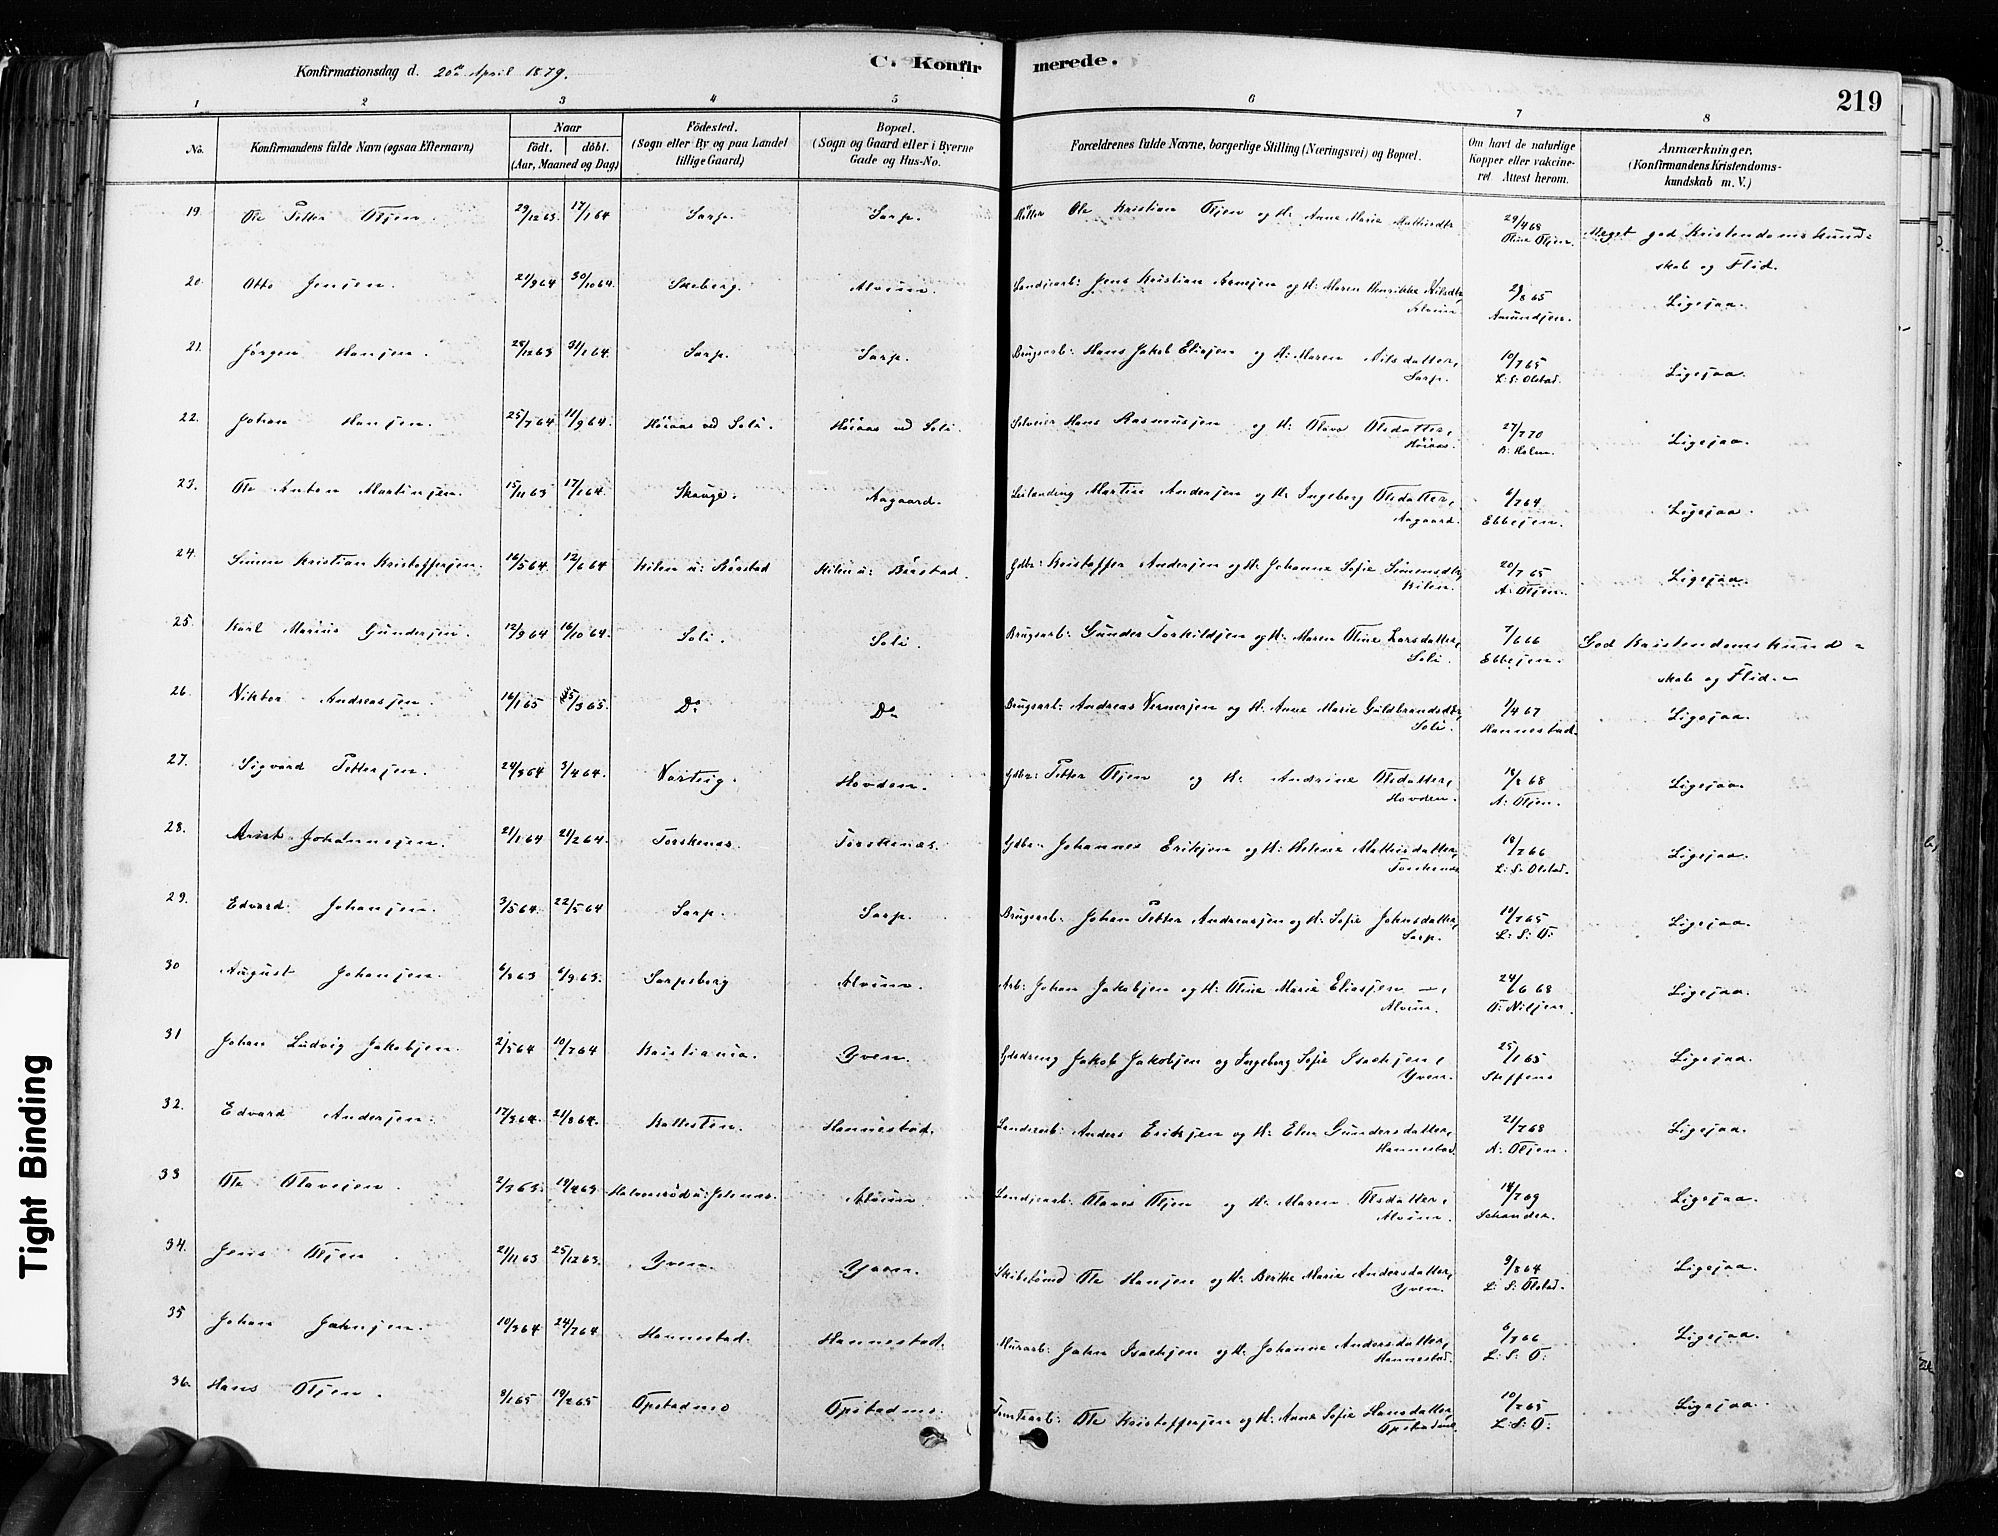 C. Konfirmerede.
Konfirmationsdag d. 20de April 1879.
219
1 2 3 4 5 6 7 8
No. Konfirmandens fulde Navn (ogsaa Efternavn) Naar födt. döbt. (Aar, Maaned og Dag) Födested. (Sogn eller By og paa Landet tillige Gaard) Bopæl. (Sogn og Gaard eller i Byerne Gade og Hus-No. Forældrenes fulde Navne, borgerlige Stilling (Næringsvei) og Bopæl. Om havt de naturlige Kopper eller vakcineret Attest herom. Anmærkninger. (Konfirmandens Kristendomskundskab m. V.)
19. Ole Petter Olsen 29/12 63. 17/1 64 Sarp. Sarp. Ole Kristian Olsen og H: Anne Marie Mathisdtr 29/4 68 Oline Olsen. Meget god Kristendomskundskab og Flid.
20. Otto Jensen. 21/9 64 30/10 64. Skeberg. Alvim. Landsarb: Jens Kristian Arnesen og H: Maren Henrikke Nilsdtr, Alvim 8 65 Amundsen. Ligesaa.
21. Jörgen Hansen. 28/12 63 31/1 64. Sarp. Sarp. Brugsarb: Hans Jakob Eliesen og H: Maren Nilsdatter, Sarp. 10/7 65 L: S: Olstad. Ligesaa.
22. Johan Hansen. 25/7 64 11/9 64. Höiaas ved Soli. Höiaas ved Soli. Selveier Hans Rasmussen og H: Olava Olsdatter, Höiaas. 27/7 70 B: Holm. Ligesaa.
23. Ole Anton Martinsen. 15/11 63 17/1 64. Skauge. Aagaard. Leilending Martin Andersen og H: Ingeborg Olsdatter, Aagaard. 6/7 64 Ebbesen. Ligesaa.
24. Simen Kristian Kristoffersen. 16/5 64. 12/6 64 Kilen u: Börstad Kilen u: Börstad. Gdbr: Kristoffer Andersen og H: Johanne Sofie Simensdtr, Kilen. 20/7 65 A: Olsen. Ligesaa.
25. Karl Marius Gundersen. 12/9 64 16/10 64. Soli. Soli. Brugsarb: Gunder Torkildsen og H: Maren Oline Larsdatter, Soli. 7/6 66 Ebbesen. God Kristendomskundskab og Flid.
26. Viktor Andreassen. 16/1 65 5/3 65. Do Do Brugsarb: Andreas Vernersen og H: Anne Marie Guldbrandsdtr, Soli. 1/4 67 Hannestad. Ligesaa.
27. Sigvard Pettersen. 24/3 64 3/4 64. Varteig. Hovden. Gdbr: Petter Olsen og H: Andrine Olsdatter, Hovden. 18/8 68 A: Olsen. Ligesaa.
28. Arnt Johannesen. 21/1 64 21/2 64. Torskenæs Torskenæs. Gdbr: Johannes Eriksen og H: Helene Mathisdatter, Torskenæs 18/7 66 L: S: Olstad. Ligesaa.
29. Edvard Johansen. 3/5 64. 22/5 64 Sarp. Sarp. Brugsarb: Johan Petter Andreassen og H: Sofie Johnsdatter, Sarp. 10/7 65 L: S: O: Ligesaa.
30 August Johansen. 6/8 63 6/9 63. Sarpsborg Alvim. Arb: Johan Jakobsen og H: Oline Marie Eliasen, Alvim. 24/6 68 O: Nilsen. Ligesaa.
31 Johan Ludvig Jakobsen. 2/5 64 10/7 64 Kristiania. Yven. Gdsdreng Jakob Jakobsen og Ingeborg Sofie Isachsen, Yven. 25/1 65 Steffens Ligesaa.
32. Edvard Andersen. 17/3 64. 21/8 64. Kallestin. Hannestad. Landsarb: Anders Eriksen og H: Elen Gundersdatter, Hannestad 21/7 68 A: Olsen. Ligesaa.
33 Ole Olavesen. 2/3 63. 19/4 63 Halvorsröd u: Jelsnes. Alvim Landsarb: Olaves Olsen og H: Maren Olsdatter, Alvim. 14/7 69 Schander. Ligesaa.
34. Jens Olsen 21/11 63 25/12 63. Yven. Yven. Skibstömd Ole Hansen og H: Berthe Marie Andersdatter, Yven. 9/8 64 L: S: Olstad. Ligesaa.
35 Johan Jahnsen. 10/3 64 24/7 64 Hannestad. Hannestad. Murarb: Jahn Isachsen og H: Johanne Andersdatter, Hannestad. 6/7 66 L: S: O: Ligesaa.
36. Hans Olsen. 8/1 65 19/2 65 Opstadmo Opstadmo. Tomtearb: Ole Kristoffersen og H: Anne Sofie Hansdatter, Opstadmo. 10/7 65 L: S: O: Ligesaa.
Tight Binding